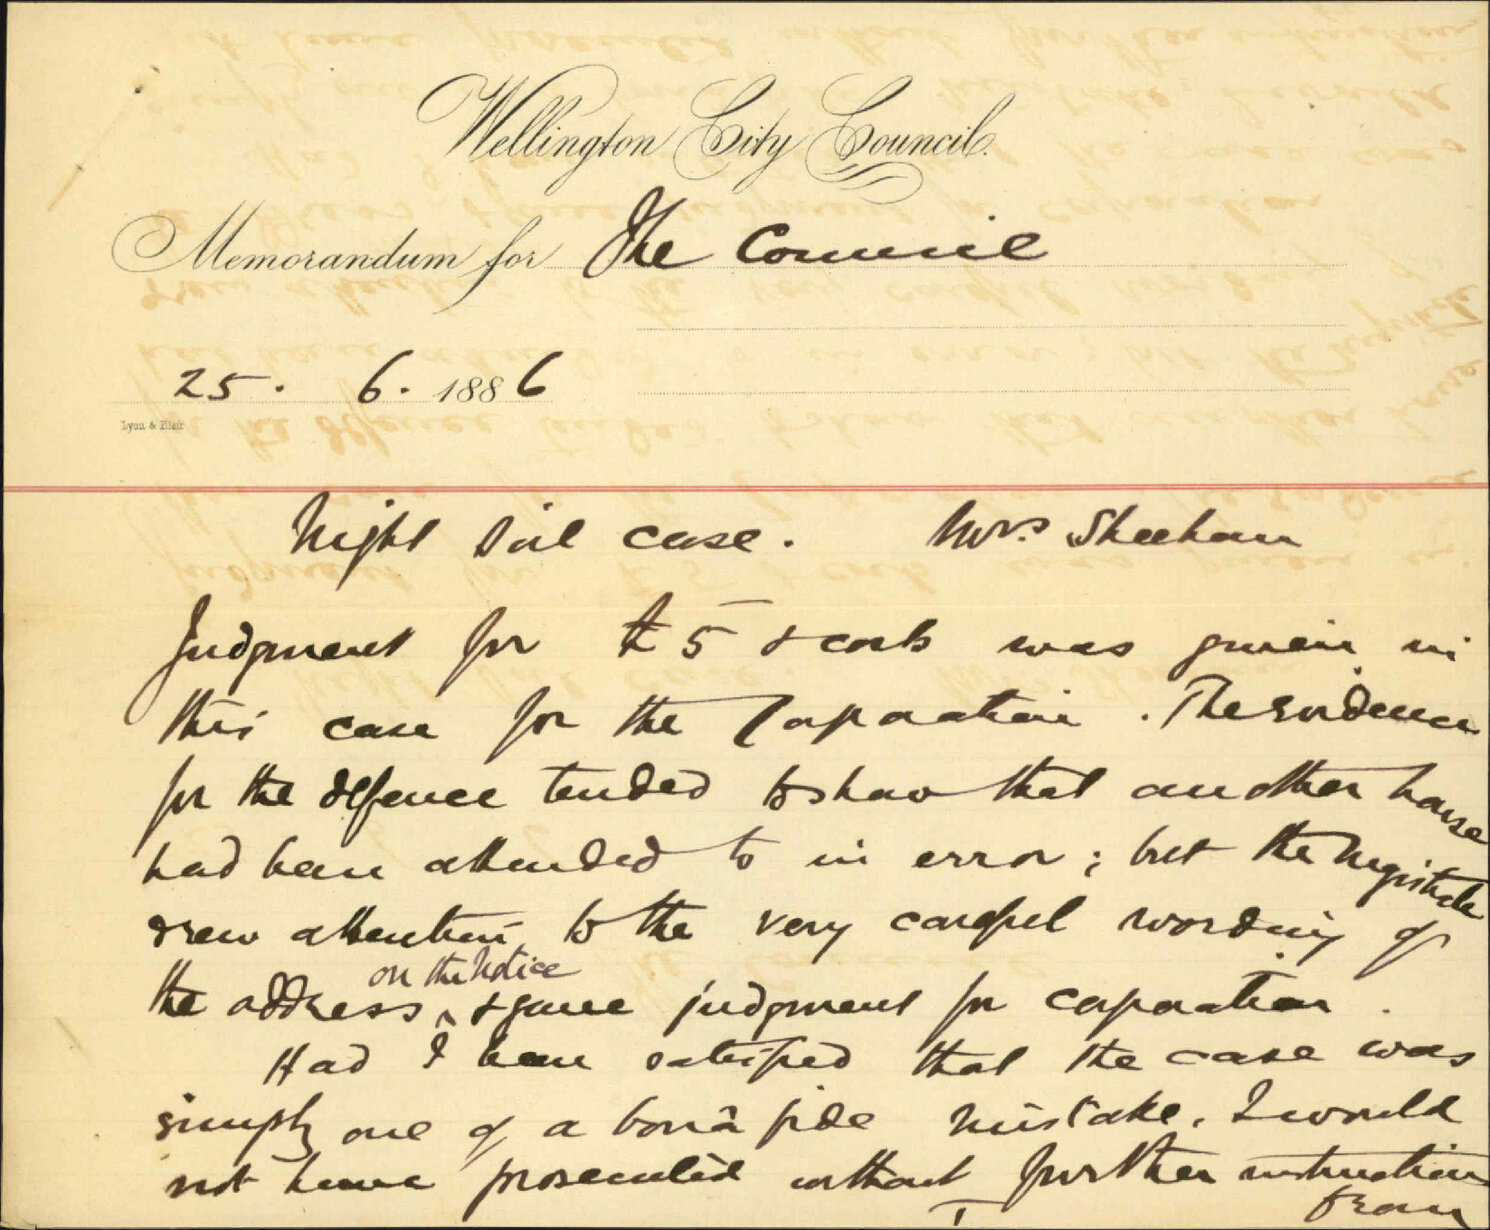 Wellington City Council.
Memorandum for The Council
25. 6. 1886
Lyon & Blair
Night Soil case. Mrs Sheehan
Judgment for £5 & costs was given in
this case for the Corporation. The Evidence
for the defence tended to show that another house
had been attended to in error; but the Magistrate
drew attention to the very careful wording of
on the Notice
the address ^ & gave judgment for corporation.
Had I been satisfied that the case was
simply one of a bonâ fide mistake, I would
not have prosecuted without further instruction
from